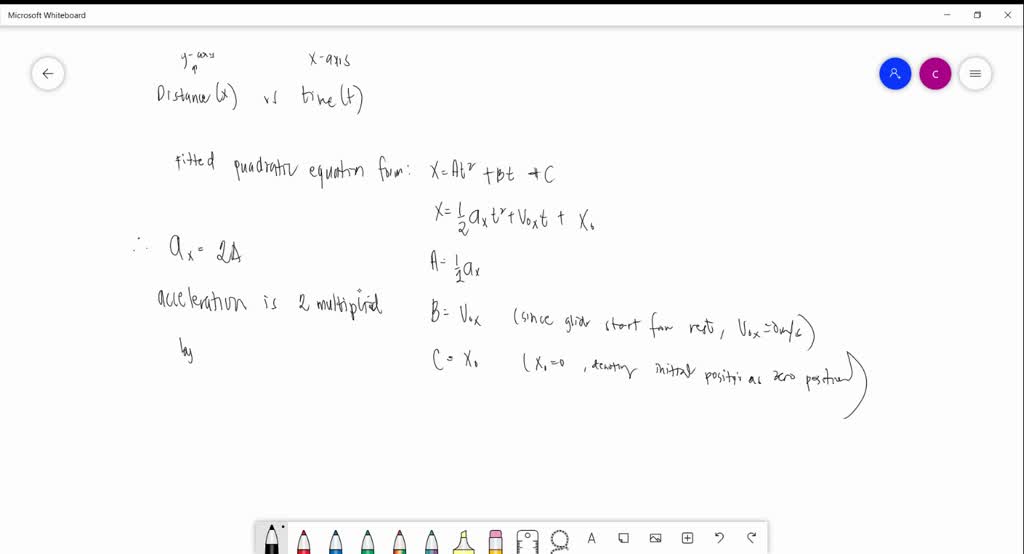 Microsoft Whiteboard
y-axis x-axis
Distance(x) vs time(t)
Fitted quadratic equation form: X=At²+Bt+C
X=½aₓt²+V₀ₓt+X₀
∴ aₓ=2A
A=½aₓ
acceleration is 2 multiplied
B=V₀ₓ (since glider start from rest, V₀ₓ=0m/s)
by
C=X₀ (X₀=0, denoting initial position as zero position)
C
A